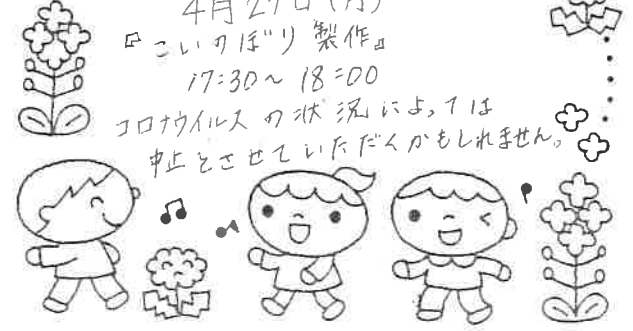 4月27日(月)
『こいのぼり製作』
17:30～18:00
コロナウイルスの状況によっては
中止とさせていただくかもしれません。